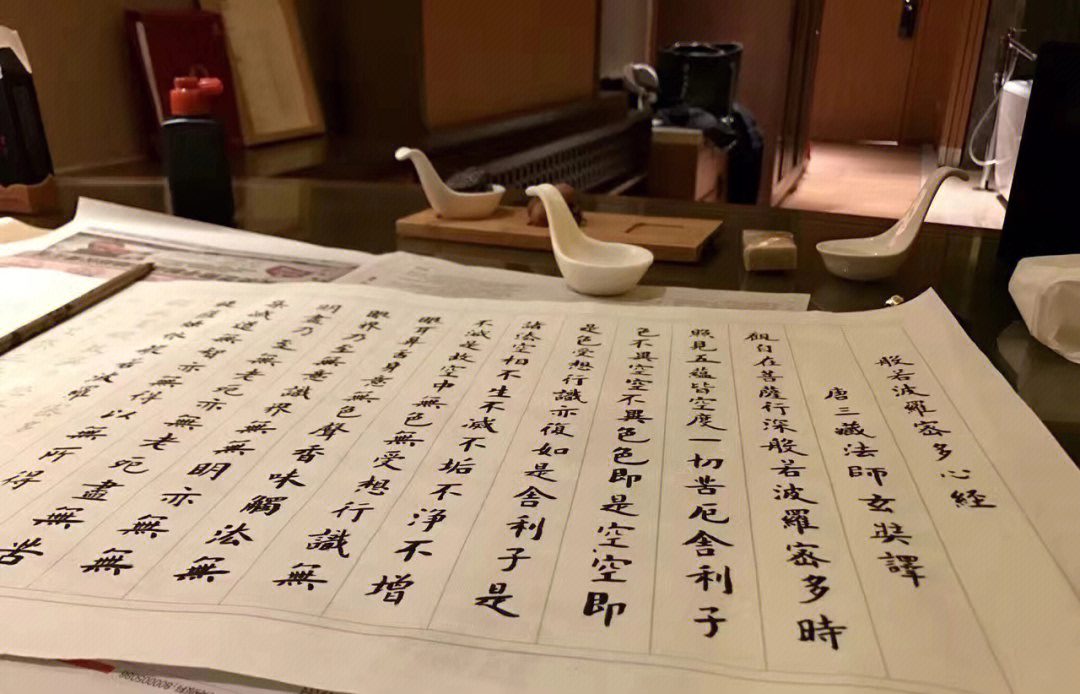 般若波羅密多心經
唐三藏法師玄奘譯
觀自在菩薩行深般若波羅密多時
照見五蘊皆空度一切苦厄舍利子
色不異空空不異色色即是空空即
是色受想行識亦復如是舍利子是
諸法空相不生不滅不垢不淨不增
不減是故空中無色無受想行識無
眼耳鼻舌身意無色聲香味觸法無
眼界乃至無意識界無無明亦無無
明盡乃至無老死亦無老死盡無苦
集滅道無智亦無得以無所得
提薩埵依般若波羅